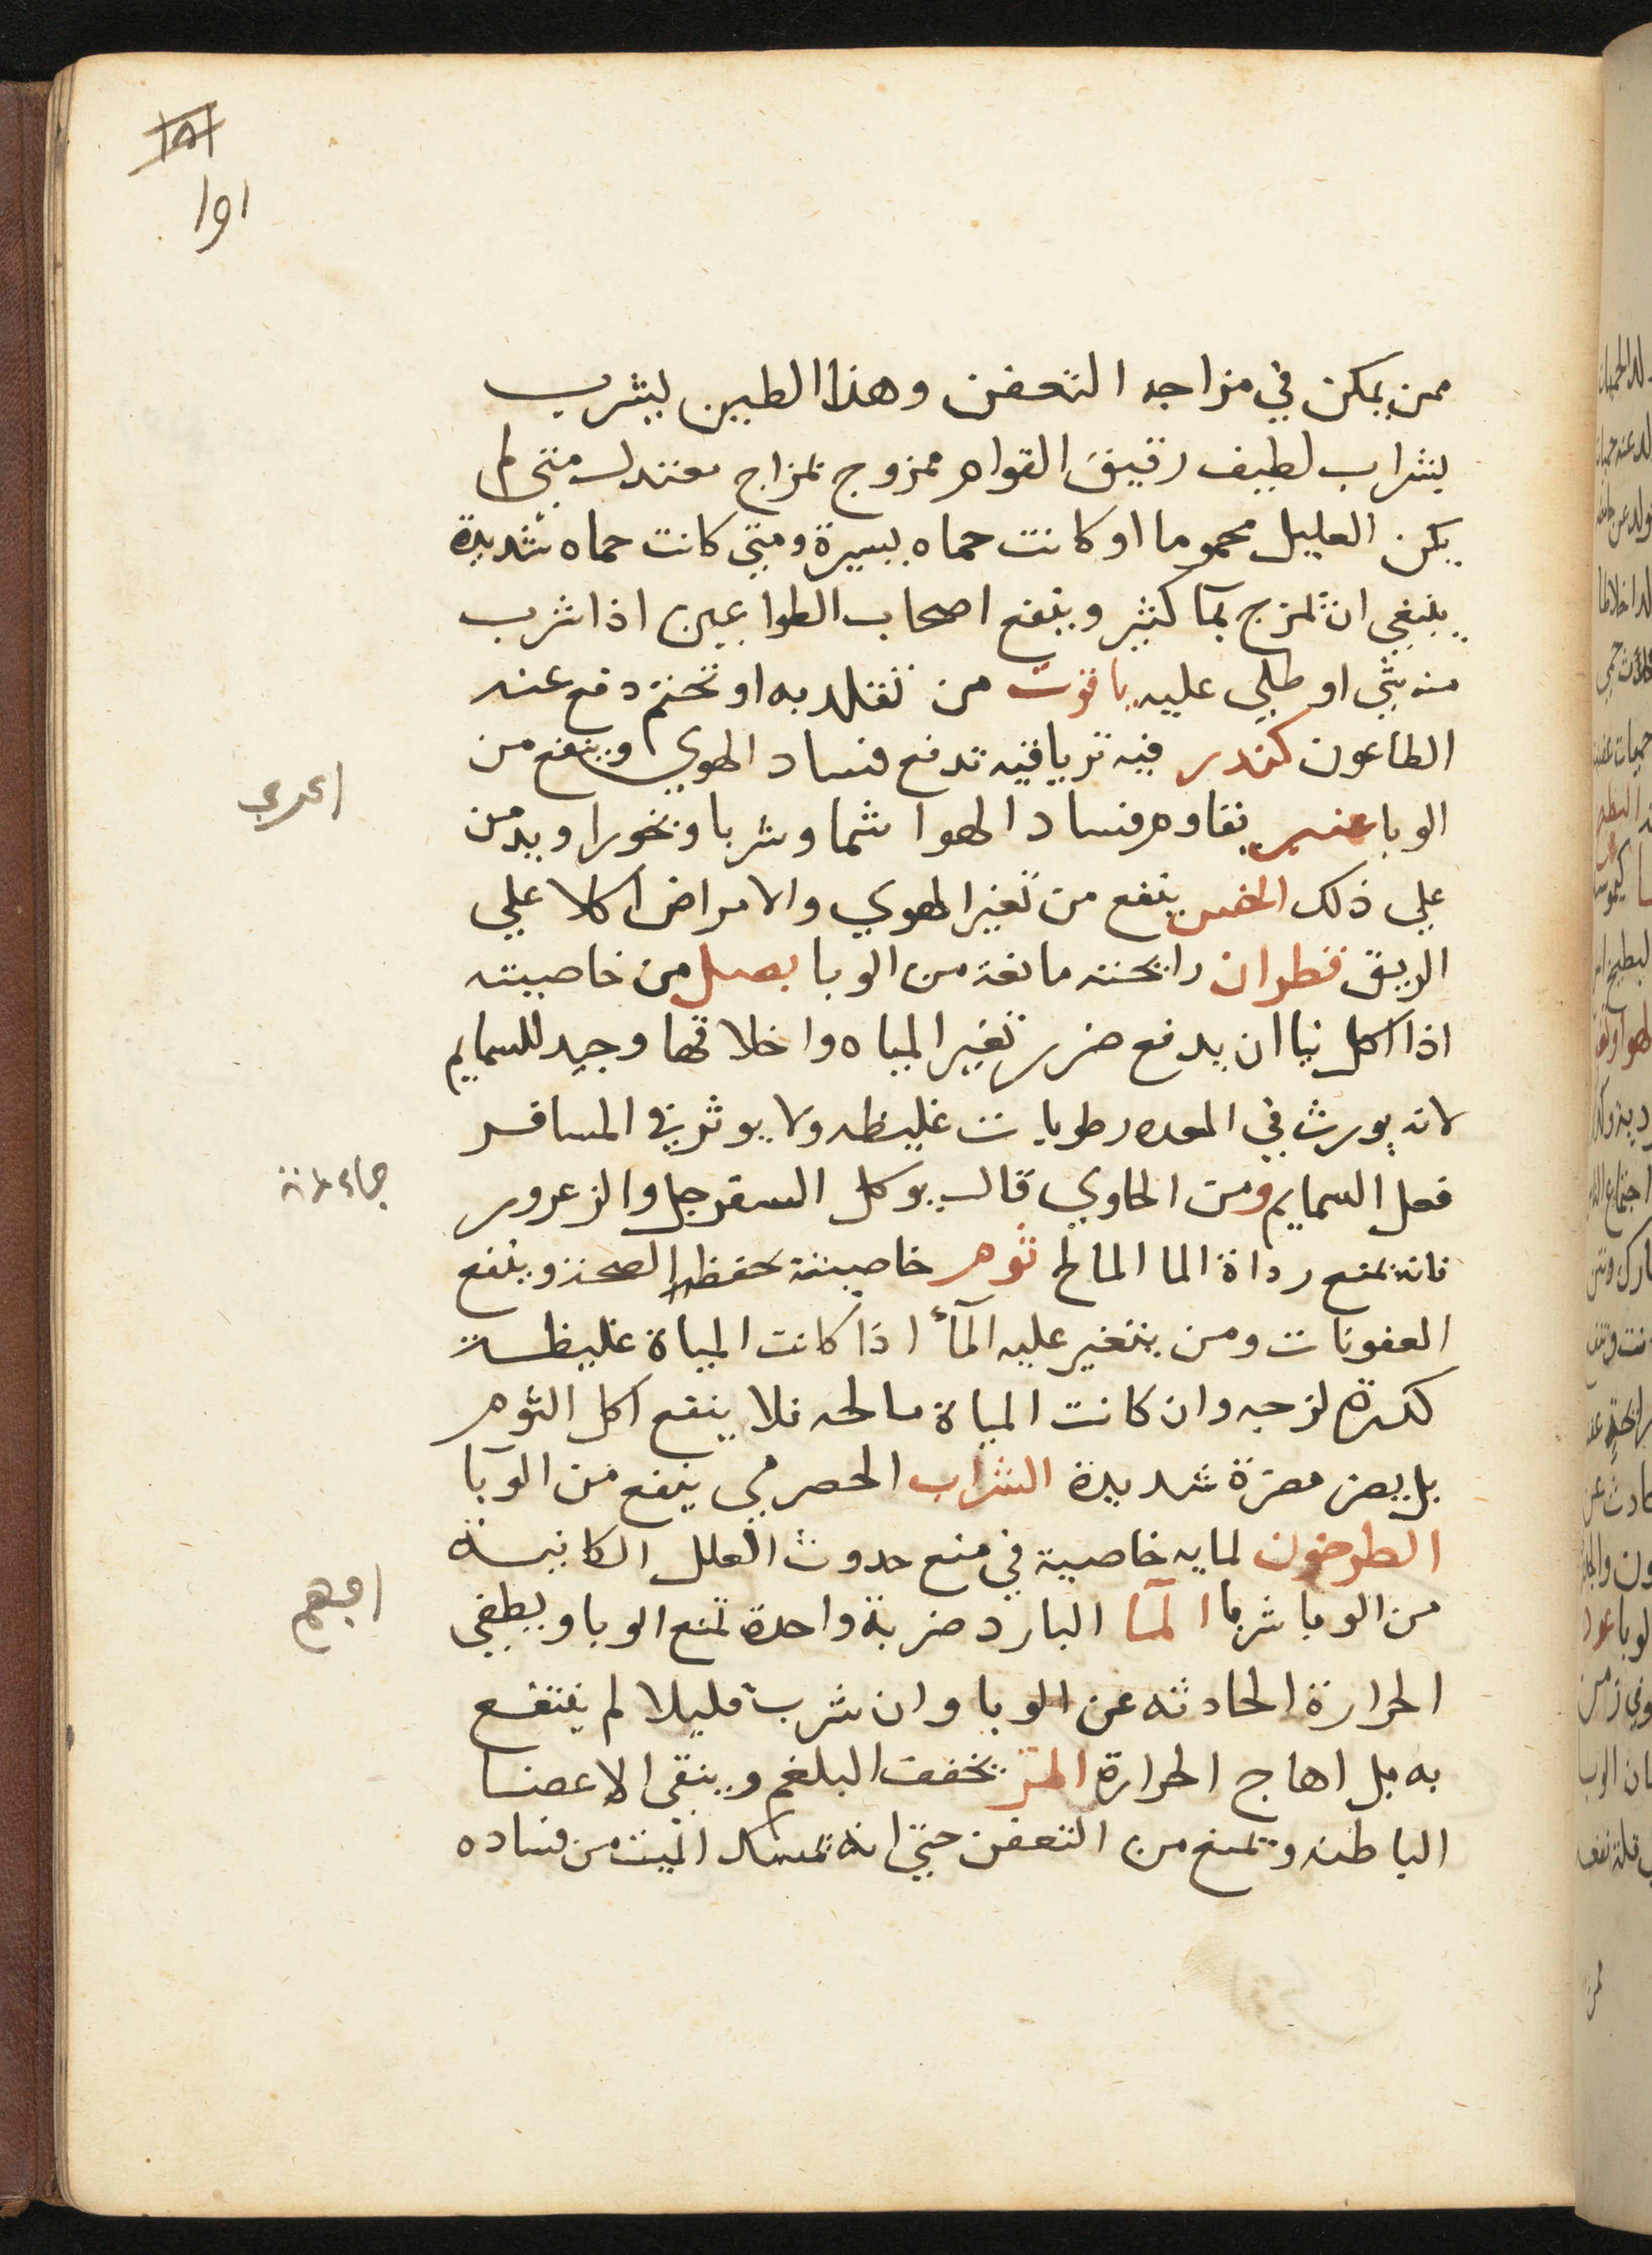 ممن يمكن في مزاجه التعفن وهذا الطين ليشرب
بشراب لطيف رقيق القوام ممزوج بمزاج معتدل متى لم
يكن العليل محموما او كانت حماه يسيرة ومتى كانت حماه شديدة
ينبغي ان تمزج بمآ كثير وينفع اصحاب الطواعين اذا شرب
منه شي او طلي عليه ياقوت من تقلد به او تختم دفع عنه
الطاعون كندر فيه ترياقيه تدفع فساد الهوي وينفع من
الوبا عنبر يقاوم فساد الهوا شما وشربا وبخورا ويدمن
علي ذلك الخس ينفع من تغير الهوي والامراض اكلا علي
الريق قطران رايحته مانعة من الوبا بصل من خاصيته
اذا اكل نيا ان يدفع ضرر تغير المياه واخلاقها وجيد للسمايم
لانه يورث في المعده رطوبات غليظه ولا يوثر في المسافر
فعل السمايم ومن الحاوي قال يوكل السفرجل والزعرور
فانه يمنع رداة الما المالح ثوم خاصيته حفظ الصحة وينفع
العفونات ومن يتغير عليه المآء اذا كانت المياة غليظة
كدرة لزجه وان كانت المياة مالحه فلا ينفع اكل الثوم
بل يضر مضرة شديدة الشراب الحصرمي ينفع من الوبا
الطرخون لمايه خاصية في منع حدوث العلل الكاينة
من الوبا شربا المآ البارد ضربة واحدة تمنع الوبا ويطفي
الحرارة الحادثه عن الوبا وان شرب قليلا لم ينتفع
به بل اهاج الحرارة المر يخفف البلغم وينقي الاعضا
الباطنه وتمنع من التعفن حتى انه تمسك الميت من فساده